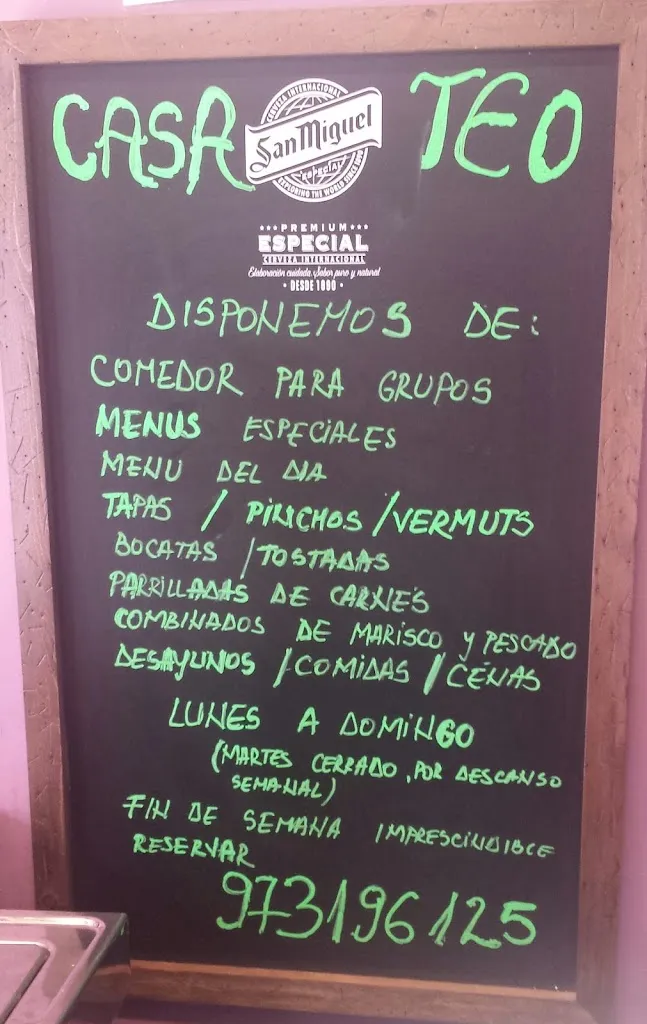 CASA TEO
CERVEZA INTERNACIONAL
San Miguel
ESPECIAL
EXPLORING THE WORLD SINCE 1890
PREMIUM
ESPECIAL
CERVEZA INTERNACIONAL
Elaboración cuidada, Sabor puro y natural
• DESDE 1890 •
DISPONEMOS DE:
COMEDOR PARA GRUPOS
MENUS ESPECIALES
MENU DEL DIA
TAPAS / PINCHOS / VERMUTS
BOCATAS / TOSTADAS
PARRILLADAS DE CARNES
COMBINADOS DE MARISCO Y PESCADO
DESAYUNOS / COMIDAS / CENAS
LUNES A DOMINGO
(MARTES CERRADO, POR DESCANSO
SEMANAL)
FIN DE SEMANA IMPRESCINDIBLE
RESERVAR
973196125